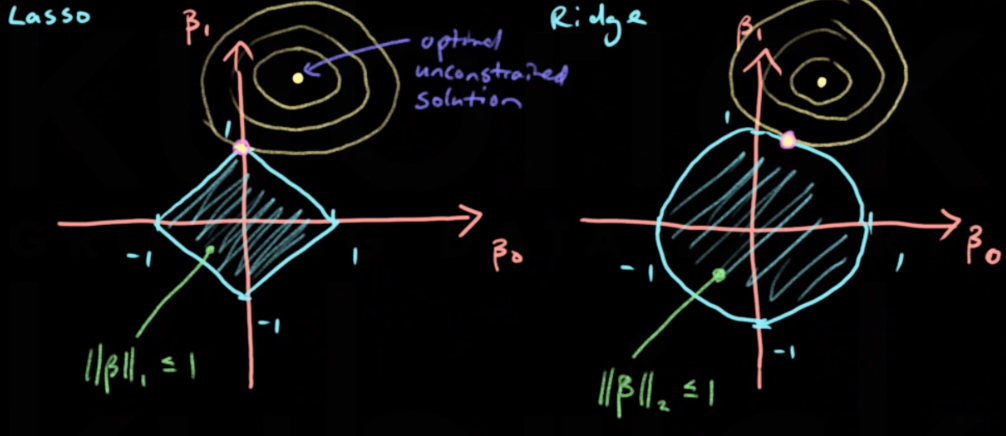 Lasso
β₁
optimal
unconstrained
solution
1
-1
1
β₀
-1
||β||₁ ≤ 1
Ridge
β₁
1
-1
1
β₀
-1
||β||₂ ≤ 1